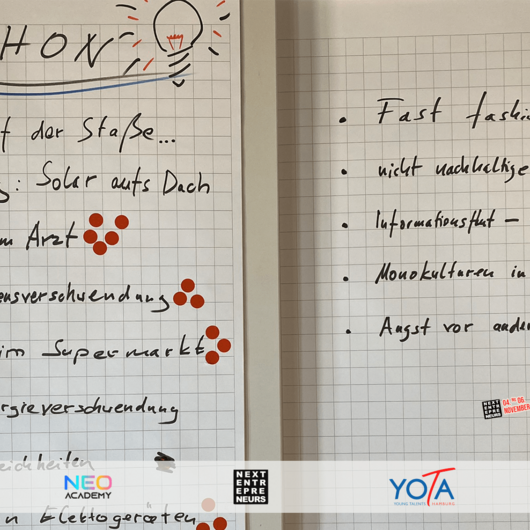 HON
f der Staße...
g: Solar aufs Dach
m Arzt
ensverschwendung
im Supermarkt
rgieverschwendung
eichheiten
n Elektogeräten
• Fast fashi
• nicht nachhaltige
• Informationsflut –
• Monokulturen in
• Angst vor ande
04 06
NOVEMBER
NEO
ACADEMY
NEXT
ENTR
EPRE
NEURS
YOTA
YOUNG TALENTS HAMBURG